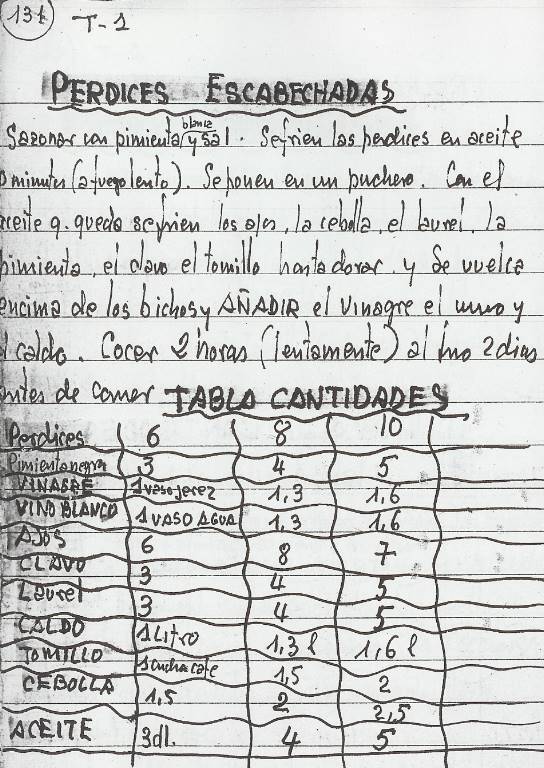 131
T-1
PERDICES ESCABECHADAS
blanca
Sazonar con pimienta y sal. Se frien las perdices en aceite
minutos (a fuego lento). Se ponen en un puchero. Con el
aceite q. queda se frien los ajos, la cebolla, el laurel, la
pimienta, el clavo el tomillo hasta dorar y se vuelca
encima de los bichos y AÑADIR el vinagre el vino y
el caldo. Cocer 2 horas (lentamente) al frio 2 dias
antes de comer TABLA CANTIDADES
Perdices 6 8 10
Pimienta negra 3 4 5
VINAGRE 1 vaso jerez 1,3 1,6
VINO BLANCO 1 VASO AGUA 1,3 1,6
AJOS 6 8 7
CLAVO 3 4 5
Laurel 3 4 5
CALDO 1 Litro 1,3 l 1,6 l
TOMILLO 1 cucha cafe 1,5 2
CEBOLLA 1,5 2 2,5
ACEITE 3 dl. 4 5